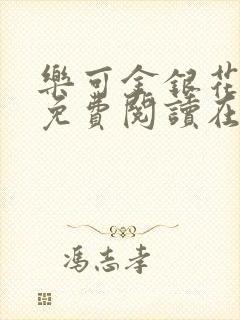 樂可金銀花
免費閱讀在
馮志孝